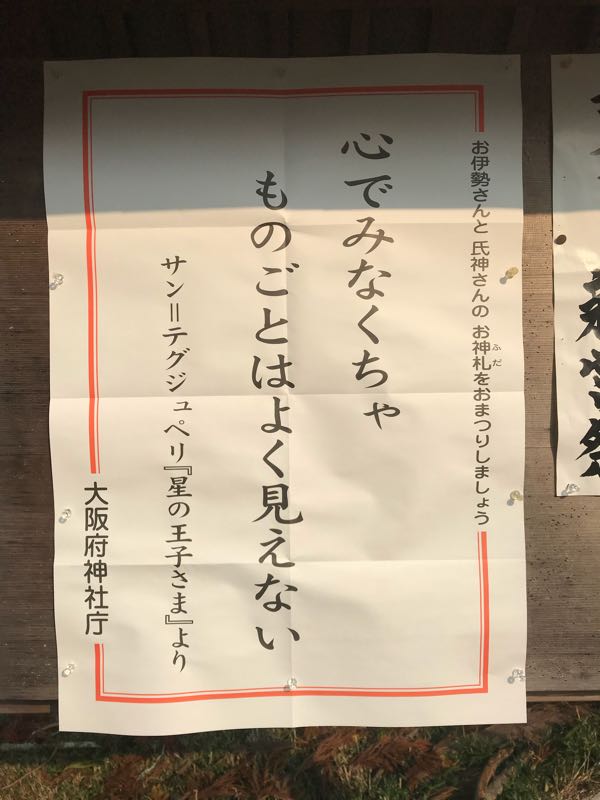 お伊勢さんと 氏神さんの お神札をおまつりしましょう
ふだ
心でみなくちゃ
ものごとはよく見えない
サン＝テグジュペリ『星の王子さま』より
大阪府神社庁